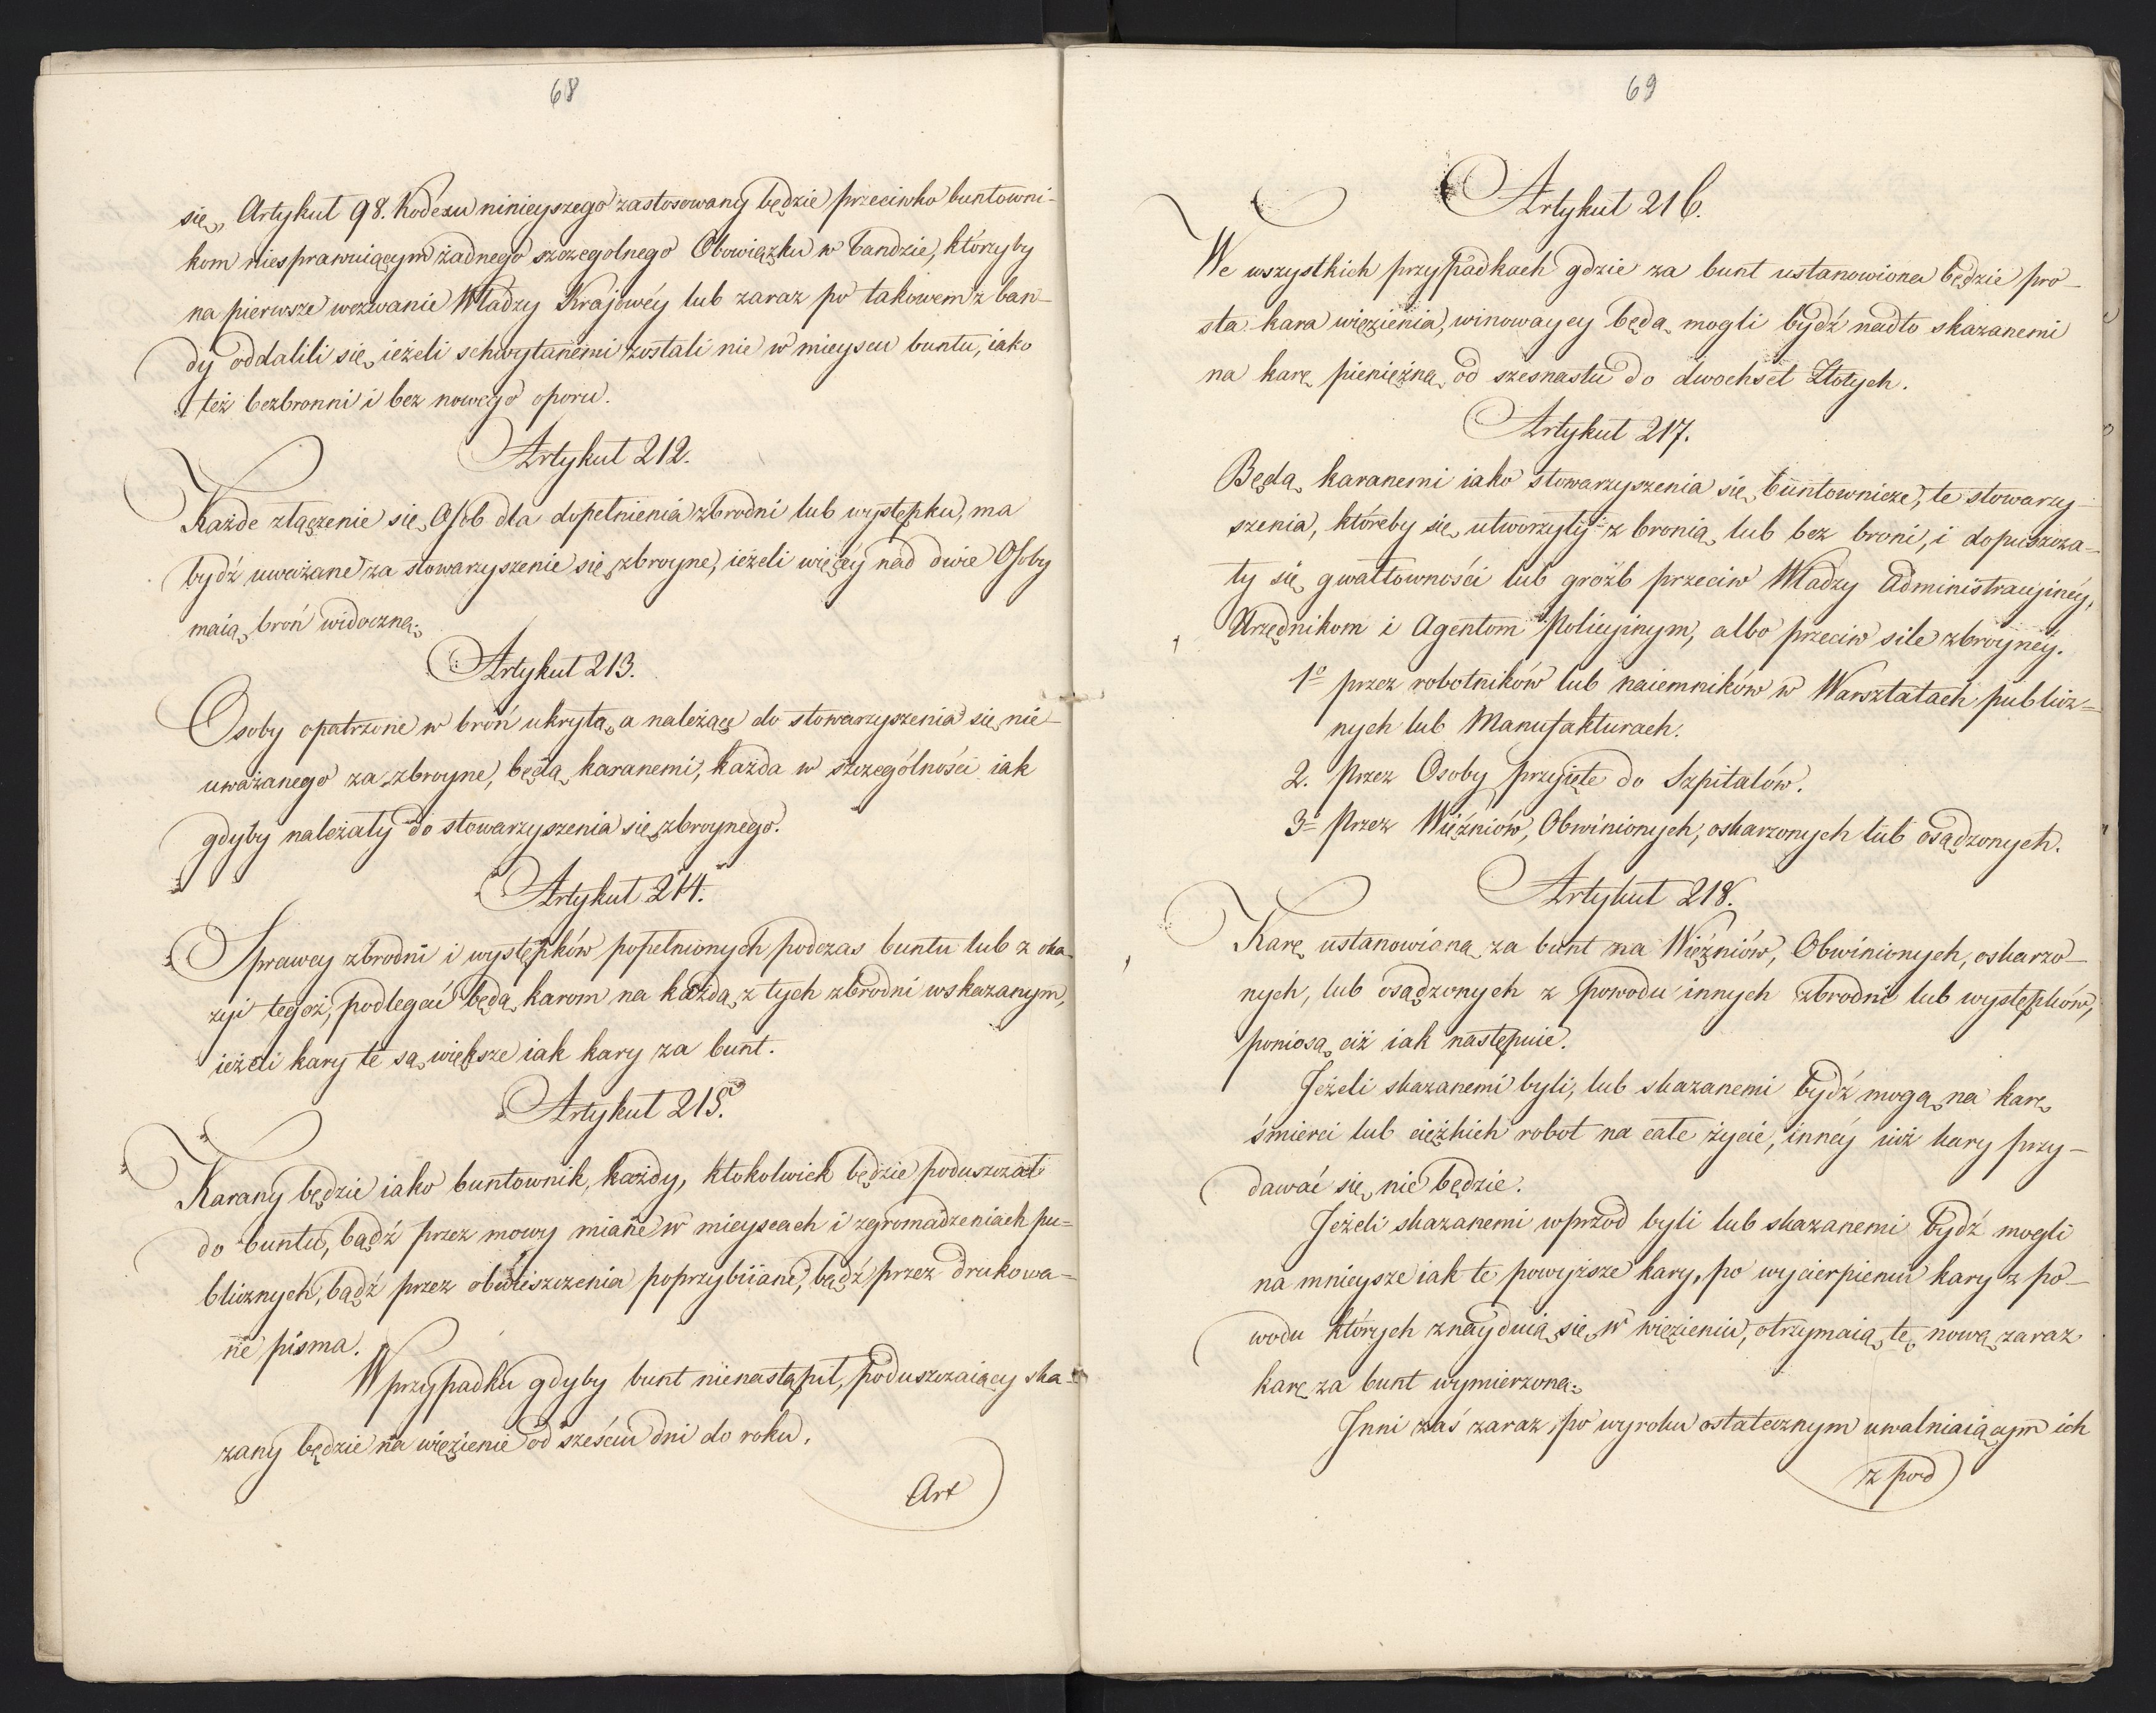 68
się, Artykuł 98. Kodexu ninieyszego zastosowany będzie przeciwko buntowni-
kom niesprawuiącym żadnego szczegolnego Obowiązku w bandzie, którzyby
na pierwsze wezwanie Władzy Krajowéy lub zaraz po takowem z ban-
dy oddalili się, ieżeli schwytanemi zostali nie w mieyscu buntu, iako
też bezbronni i bez nowego oporu.
Artykuł 212.
Każde złączenie się Osób dla dopełnienia zbrodni lub występku, ma
bydź uważane za stowarzyszenie się zbroyne, ieżeli więcéy nad dwie Osoby
maią broń widoczną.
Artykuł 213.
Osoby opatrzone w broń ukrytą, a należące do stowarzyszenia się nie-
uważanego za zbroyne, będą karanemi, każda w szczególności iak
gdyby należały do stowarzyszenia się zbroynego.
Artykuł 214.
Sprawcy zbrodni i występków popełnionych podczas buntu lub z oka-
zyi tegoż, podlegać będą karom na każdą z tych zbrodni wskazanym,
ieżeli kary te są większe iak kary za bunt.
Artykuł 215.
Karany będzie iako buntownik, każdy, ktokolwiek będzie poduszczał
do buntu, bądź przez mowy miane w mieyscach i zgromadzeniach pu-
blicznych, bądź przez obwieszczenia poprzybiiane, bądź przez drukowa-
ne pisma.
W przypadku gdyby bunt nienastąpił, poduszczaiący ska-
zany będzie na więzienie od sześciu dni do roku.
Art
69
Artykuł 216.
We wszystkich przypadkach gdzie za bunt ustanowiona będzie pro-
sta kara więzienia, winowaycy będą mogli bydź nadto skazanemi
na karę pieniężną od szesnastu do dwochset Złotych.
Artykuł 217.
Będą karanemi iako stowarzyszenia się buntownicze, te stowarzy-
szenia, któreby się utworzyły z bronią lub bez broni, i dopuszcza-
ły się gwałtowności lub groźb przeciw Władzy Administracyinéy,
Urzędnikom i Agentom Policyinym, albo przeciw sile zbroynéy.
1º przez robotników lub naiemników w Warsztatach publicz-
nych lub Manufakturach.
2. Przez Osoby przyięte do Szpitalów.
3º Przez Więźniów, Obwinionych, oskarzonych lub osądzonych.
Artykuł 218.
Karę ustanowioną za bunt na Więźniów, Obwinionych, oskarzo-
nych, lub osądzonych z powodu innych zbrodni lub występków,
poniosą ciż iak następuie.
Jeżeli skazanemi byli, lub skazanemi bydź mogą na karę
śmierci lub ciężkich robot na całe życie, innéy iuż kary przy-
dawać się nie będzie.
Jeżeli skazanemi wprzod byli lub skazanemi bydź mogli
na mnieysze iak te powyższe kary, po wycierpieniu kary z po-
wodu których znayduią się w więzieniu, otrzymaią tę nową zaraz
karę za bunt wymierzoną.
Inni zaś zaraz po wyroku ostatecznym uwalniaiącym ich
z pod